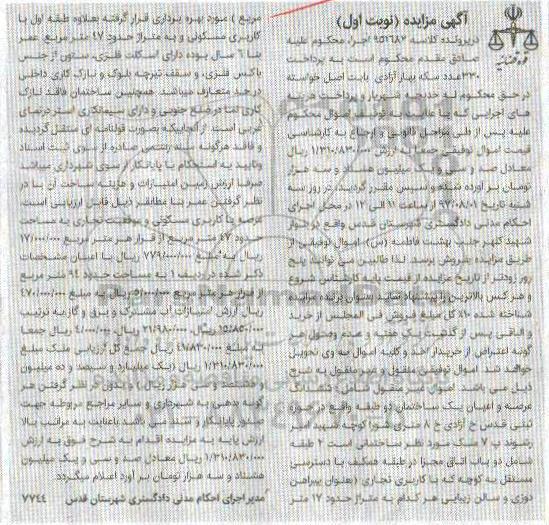 آگهی مزایده (نوبت اول)
درپرونده کلاسه ۹۵۱۶۸۲ اجرا، محکوم علیه
صادق مقدم محکوم است به پرداخت
۳۳۰عدد سکه بهار آزادی بابت اصل خواسته
در حق محکوم له خدیجه شهریار و پرداخت هزینه
های اجرایی که با عنایت به توقیف اموال محکوم
علیه پس از طی مراحل قانونی و ارجاع به کارشناسی
قیمت اموال توقیفی جمعا به ارزش ۱/۳۱۰/۸۳۰/۰۰۰ ریال
معادل صد و سی و یک میلیون هشتاد و سه هزار
تومان بر آورده شده و سپس مقرر گردید، در روز سه
شنبه تاریخ ۹۷/۰۸/۰۱ از ساعت ۱۱ الی ۱۲ در محل اجرای
احکام مدنی دادگستری شهرستان قدس واقع در بلوار
شهید کلهر جنب بهشت فاطمه (س) اموال توقیفی از
طریق مزایده بفروش برسد. لذا طالبین می توانند پنج
روز زودتر از تاریخ مزایده از قیمت پایه کارشناس شروع
و هر کس بالاترین را پیشنهاد نماید بعنوان برنده مزایده
شناخته شده ۱۰٪ کل مبلغ فروش فی المجلس از خرید
و الباقی پس از گذشت یک هفته و عدم وصول هر
گونه اعتراض از خریدار اخذ و کلیه اموال به وی تحویل
خواهد شد. اموال توقیفی منقول و غیر منقول به شرح
ذیل می باشد. اموال غیر منقول شامل: ششدانگ
عرصه و اعیان یک ساختمان دو طبقه واقع در حوزه
ثبتی قدس خ آزادی خ ۸ متری شورا کوچه شهید امیر
رشوند پ ۷ ملک مورد نظر ساختمانی است ۲ طبقه
شامل دو باب اتاق مجزا در طبقه همکف با دسترسی
مستقل به کوچه که با کاربری تجاری (بعنوان پیراهن
دوزی و سالن زیبایی هر کدام به متراژ حدود ۱۷ متر
مربع ) مورد بهره برداری قرار گرفته بعلاوه طبقه اول با
کاربری مسکونی و به متراژ حدود ۴۷ متر مربع عمر
بنا ۶ سال بوده دارای اسکلت فلزی، ستون از جنس
باکس فلزی، و سقف تیرچه بلوک و نازک کاری داخلی
در حد متعارف میباشد. همچنین ساختمان فاقد نازک
کاری نما در ضلع جنوبی و دارای سیمانکاری استر درنمای
غربی است. از آنجاییکه بصورت قولنامه ای منتقل گردیده
و فاقد هرگونه سند رسمی صادره از سوی ثبت اسناد
وتایید به استحکام یا پایانکار از سوی شهرداری میباشد
صرفا ارزش زمین امتیازات و هزینه ساخت آن با در
نظر گرفتن عمر بنا مطابق ذیل قابل ارزیابی است.
عرصه با کاربری مسکونی و موقعیت تجاری به مساحت
حدود ۴۷ متر مربع از قرار هر متر مربع ۱۷/۰۰۰/۰۰۰
ریال به مبلغ ۷۹۹/۰۰۰/۰۰۰ ریال با اعیان مشخصات
ذکر شده در ردیف ۱ به مساحت حدود ۹۴ متر مربع
از قرار هر متر مربع ۵/۰۰۰/۰۰۰ ریال به مبلغ ۴۷۰/۰۰۰/۰۰۰
ریال ارزش امتیازات آب مشترک و برق و گاز به ترتیب
۱۵/۸۵۰/۰۰۰ ریال، ۲۱/۹۸۰/۰۰۰ ریال، ۴/۰۰۰/۰۰۰ ریال جمعا
به مبلغ ۴۱/۸۳۰/۰۰۰ ریال جمع کل ارزیابی ملک مبلغ
۱/۳۱۰/۸۳۰/۰۰۰ ریال (یک میلیارد و سیصد و ده میلیون
و هشتصد و سی هزار ریال ) با بدون در نظر گرفتن هر
گونه بدهی به شهرداری و سایر مراجع مربوطه جهت
صدور پایانکار و سند می باشد باعنایت به مراتب بالا
ارزش پایه به مزایده اقدام به شرح فوق به ارزش
۱/۳۱۰/۸۳۰/۰۰۰ ریال معادل صد و سی و یک میلیون
هشتاد و سه هزار تومان بر آورد اعلام میگردد.
مدیر اجرای احکام مدنی دادگستری شهرستان قدس ۷۷۴۴